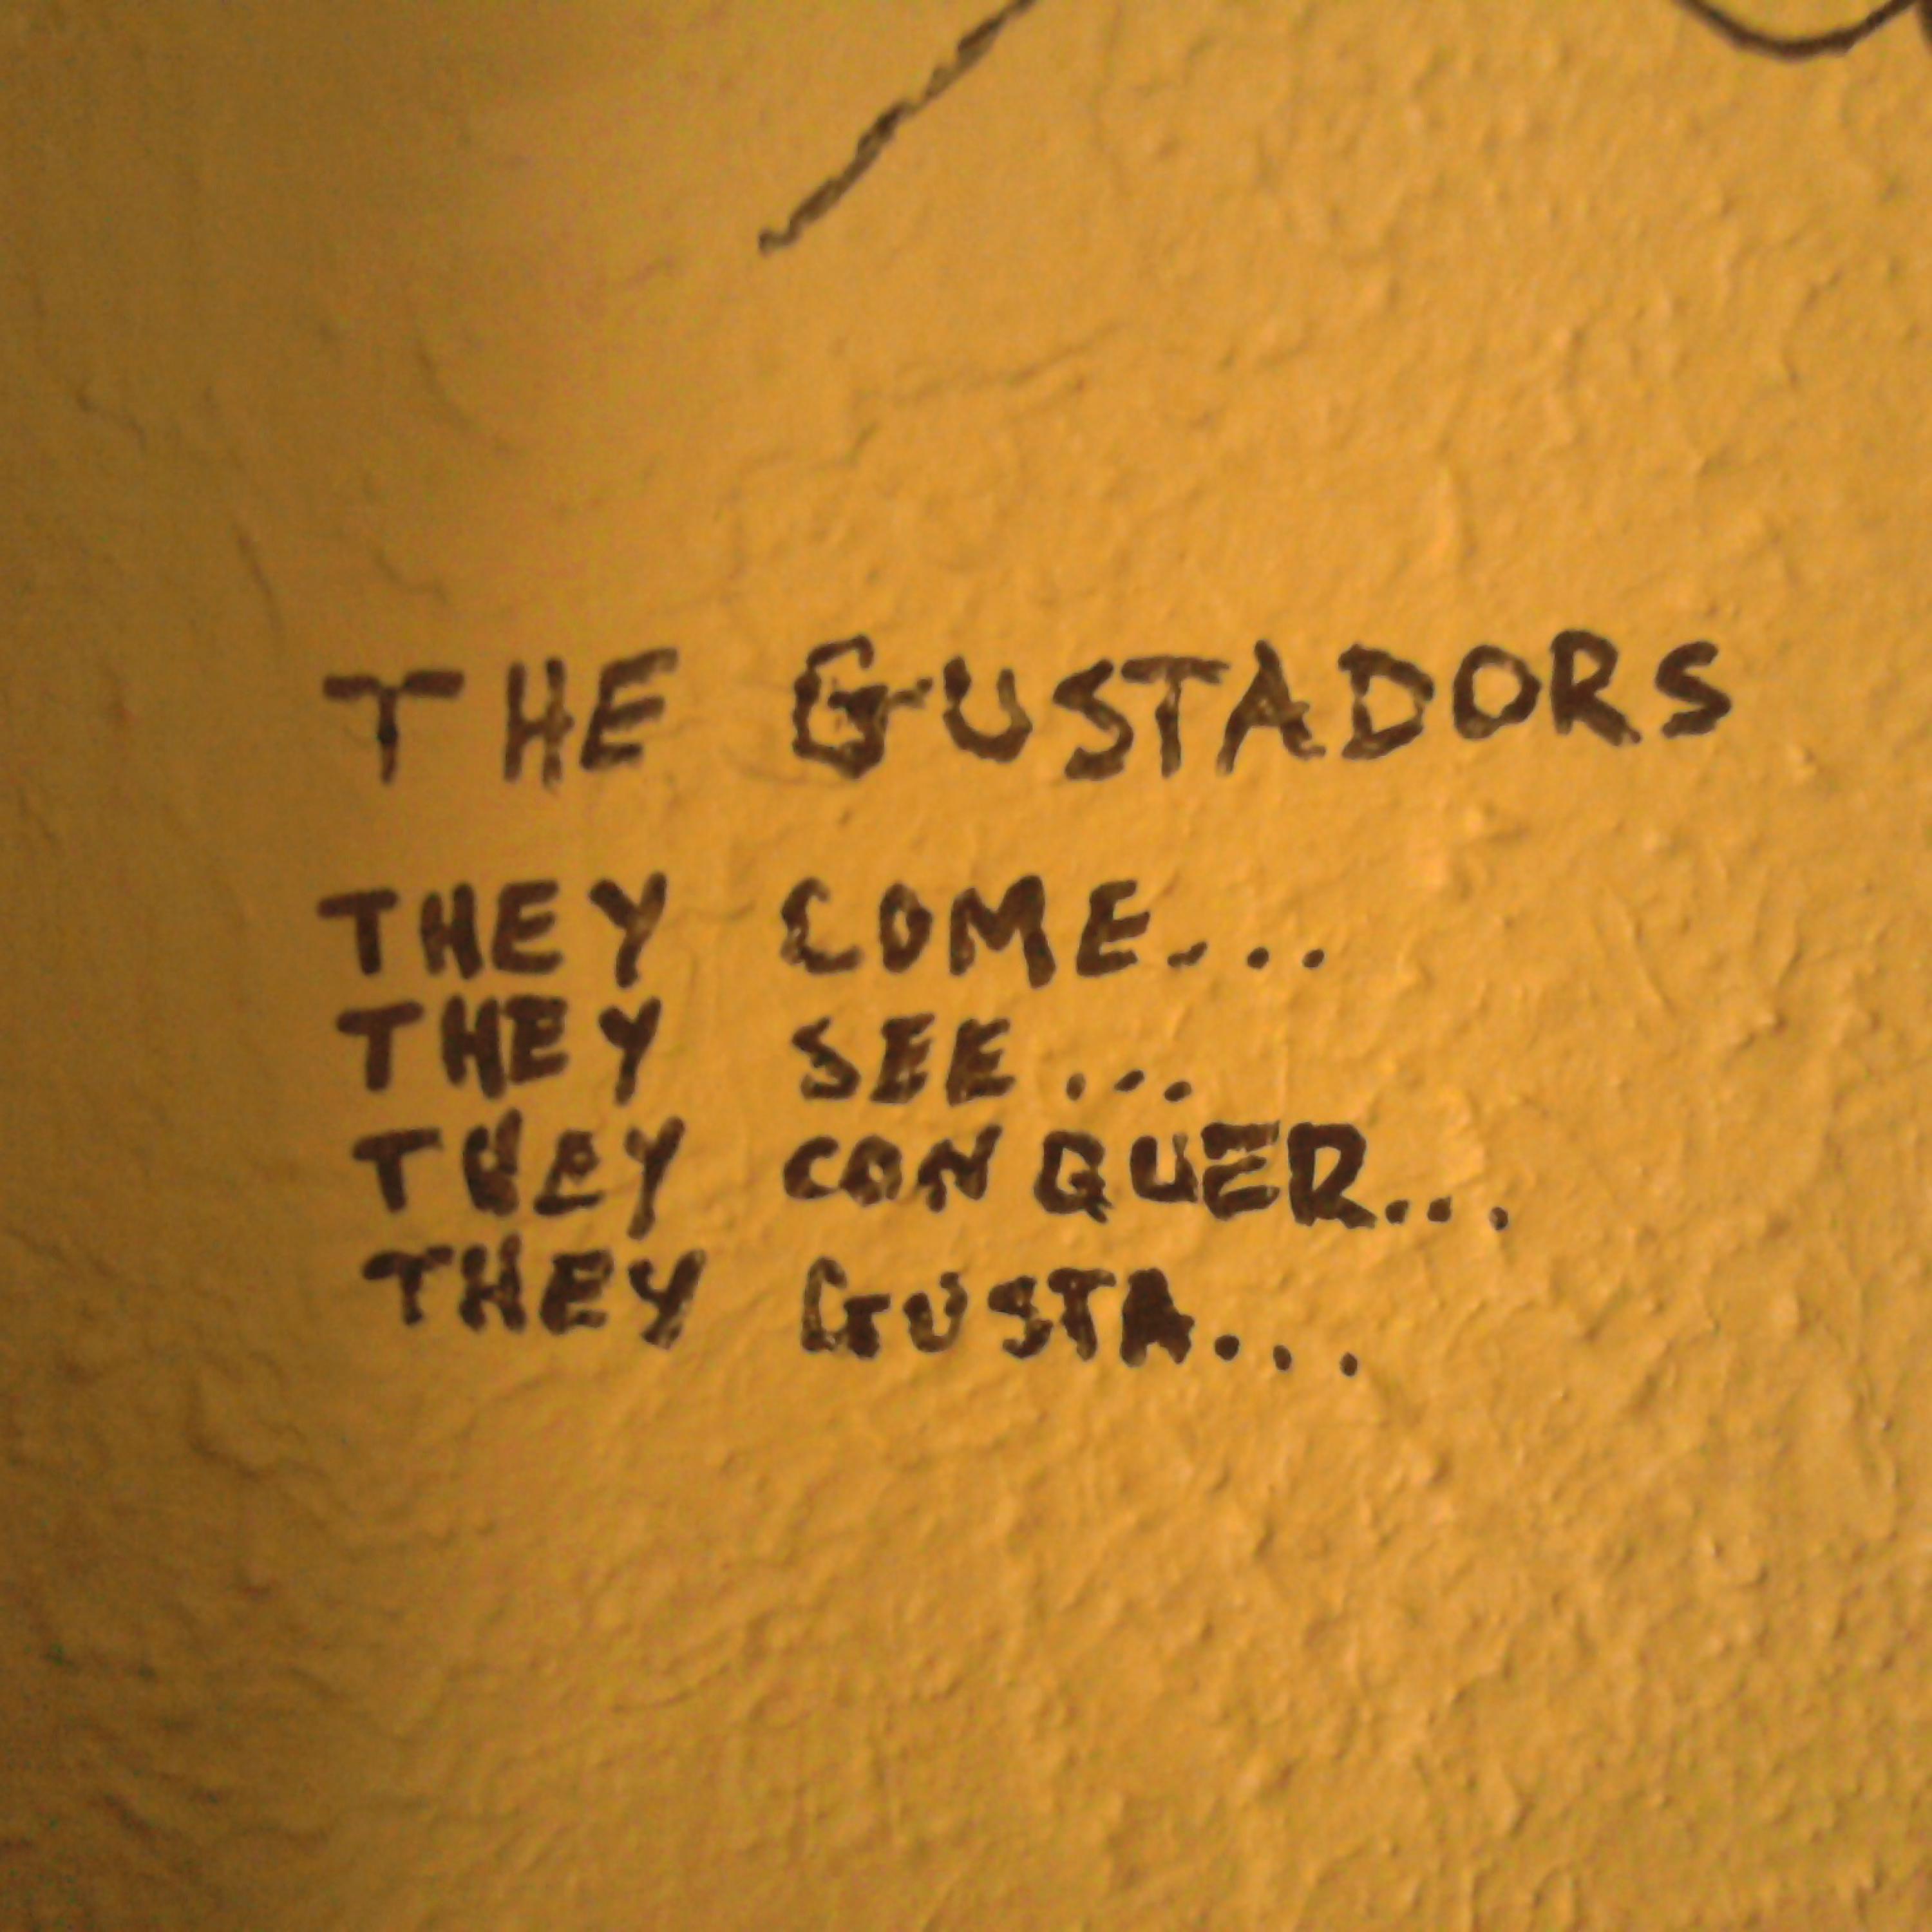 THE GUSTADORS
THEY COME...
THEY SEE...
THEY CONQUER...
THEY GUSTA...